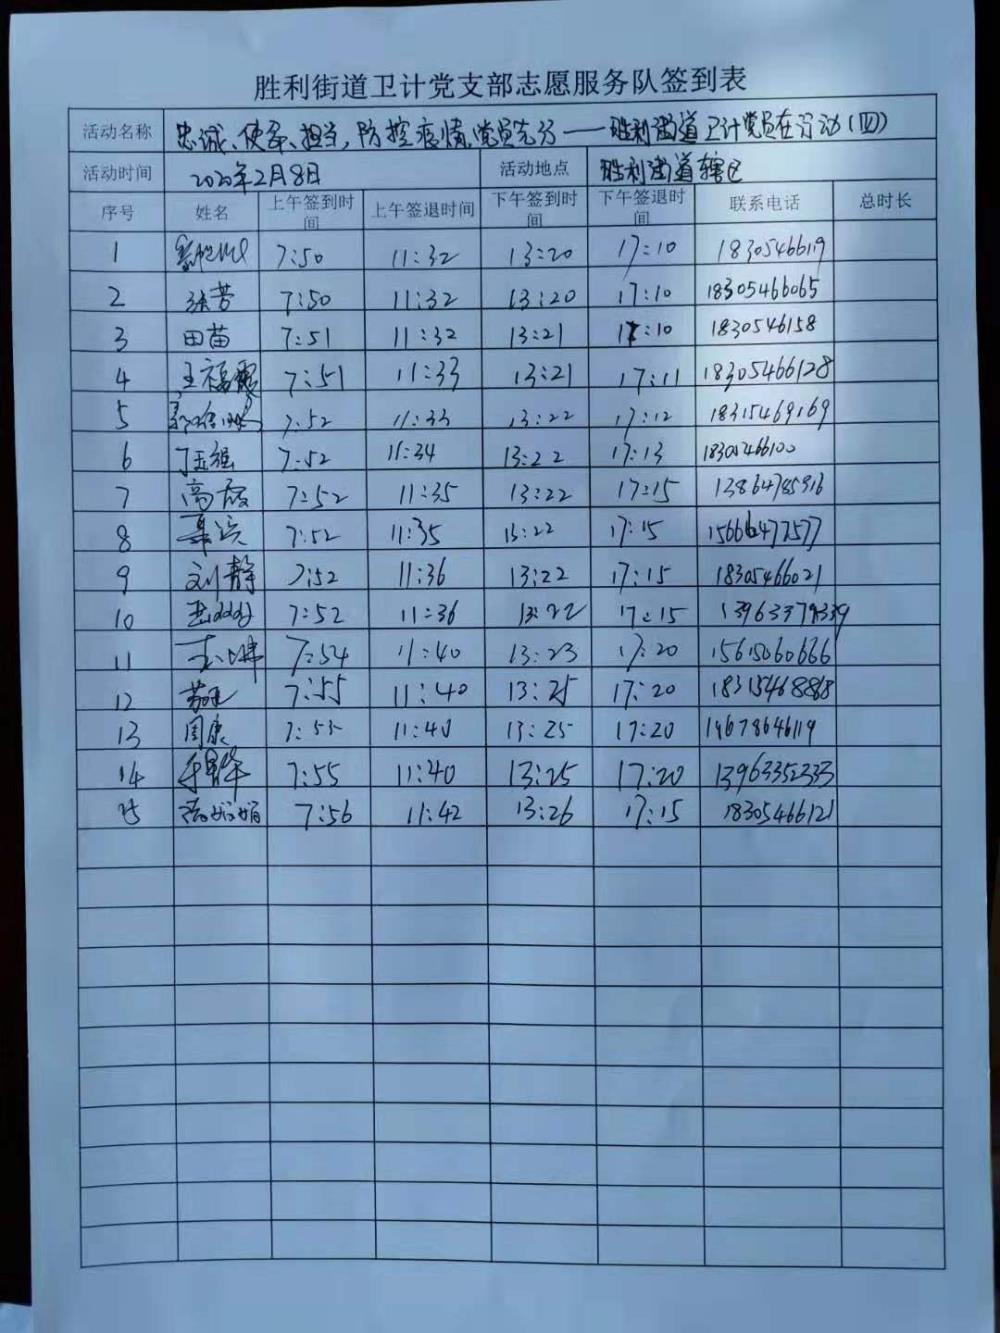 胜利街道卫计党支部志愿服务队签到表
活动名称 忠诚、使命、担当,防控疫情,党员先行——胜利街道卫计党员在行动(四)
活动时间 2020年2月8日 活动地点 胜利街道辖区
序号 姓名 上午签到时间 上午签退时间 下午签到时间 下午签退时间 联系电话 总时长
1 7:50 11:32 13:20 17:10 1830546619
2 张芳 7:50 11:32 13:20 17:10 18305466065
3 田苗 7:51 11:32 13:21 17:10 1830546158
4 王福霞 7:51 11:33 13:21 17:11 18305466128
5 7:52 11:33 13:22 17:12 18315469169
6 丁玉强 7:52 11:34 13:22 17:13 18305466100
7 高霞 7:52 11:35 13:22 17:15 13864785916
8 7:52 11:35 13:22 17:15 15666477577
9 刘静 7:52 11:36 13:22 17:15 18305466021
10 7:52 11:36 13:22 17:15
11 7:54 11:40 13:23 17:20 15615060666
12 7:55 11:40 13:25 17:20 18315468868
13 周康 7:55 11:40 13:25 17:20
14 7:55 11:40 13:25 17:20 13963352333
15 7:56 11:42 13:26 17:15 18305466121